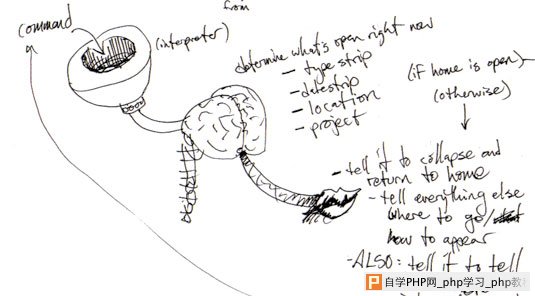 from
command
(interpreter)
determine what's open right now
- type strip
- datestrip
- location
- project
(if home is open)
(otherwise)
- tell it to collapse and
return to home
- tell everything else
where to go/
how to appear
- ALSO: tell it to tell
自学PHP网_php学习_php教